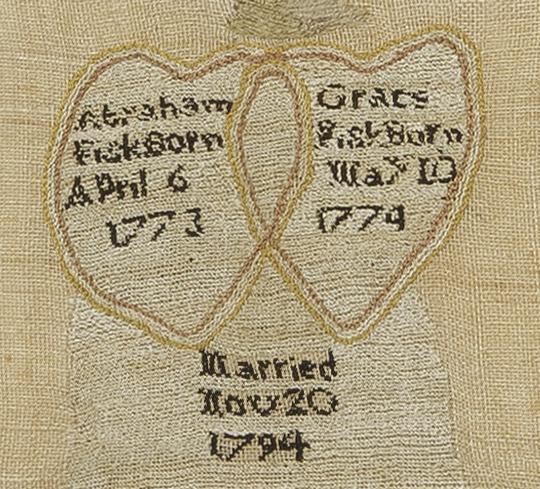 Abraham
Fisk Born
April 6
1773
Grace
Fisk Born
May 10
1774
Married
Nov 20
1794